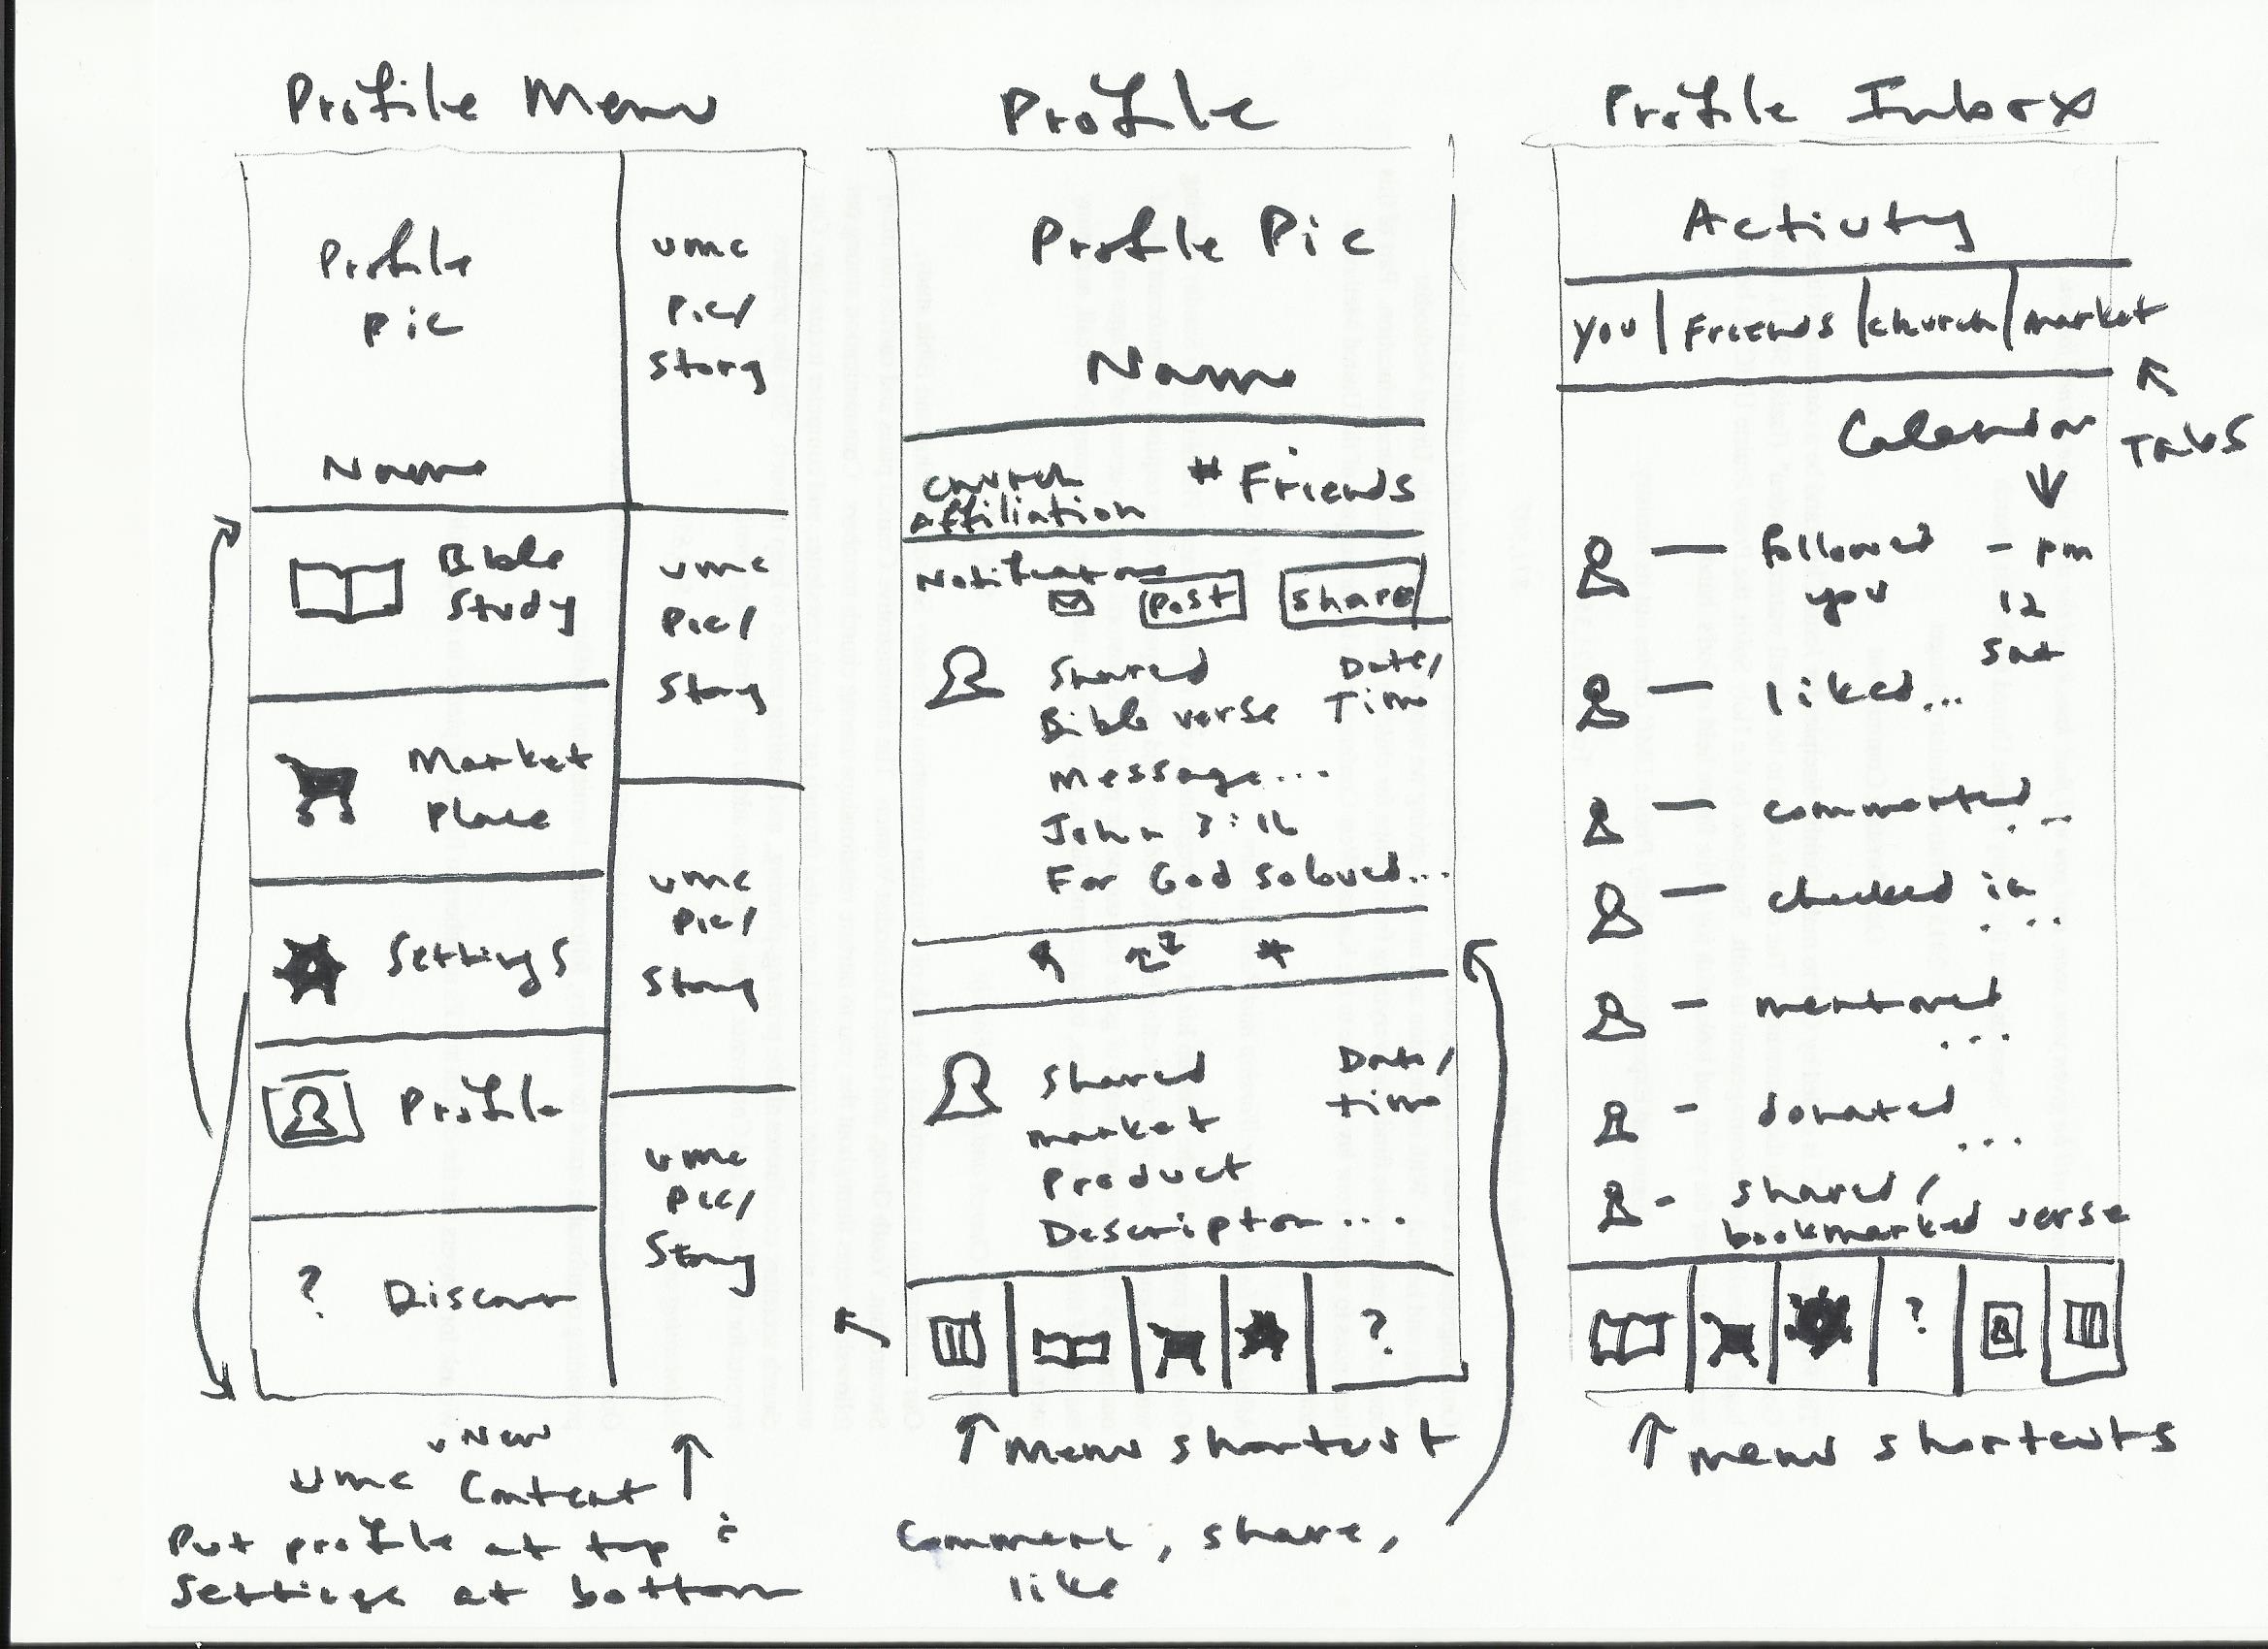 Profile Menu
Profile
pic
Name
umc
Pic/
Story
Bible
Study
umc
Pic/
Story
Market
Place
Settings
umc
Pic/
Story
Profile
umc
Pic/
Story
? Discover
New
umc Content
Put profile at top &
Settings at bottom
Profile
Profile Pic
Name
Church
Affiliation
# Friends
Notifications
Post
Share
Shared
Bible verse
message...
John 3:16
For God so loved...
Date/
Time
Shared
market
Product
Description...
Date/
time
?
Menu shortcut
Comment, share,
like
Profile Inbox
Activity
you | Friends | church | market
Tabs
Calendar
— followed
you
- pm
12
Sat
— liked...
— commented...
— checked in
...
- mentioned
...
- donated
...
- shared/
bookmarked verse
?
menu shortcuts